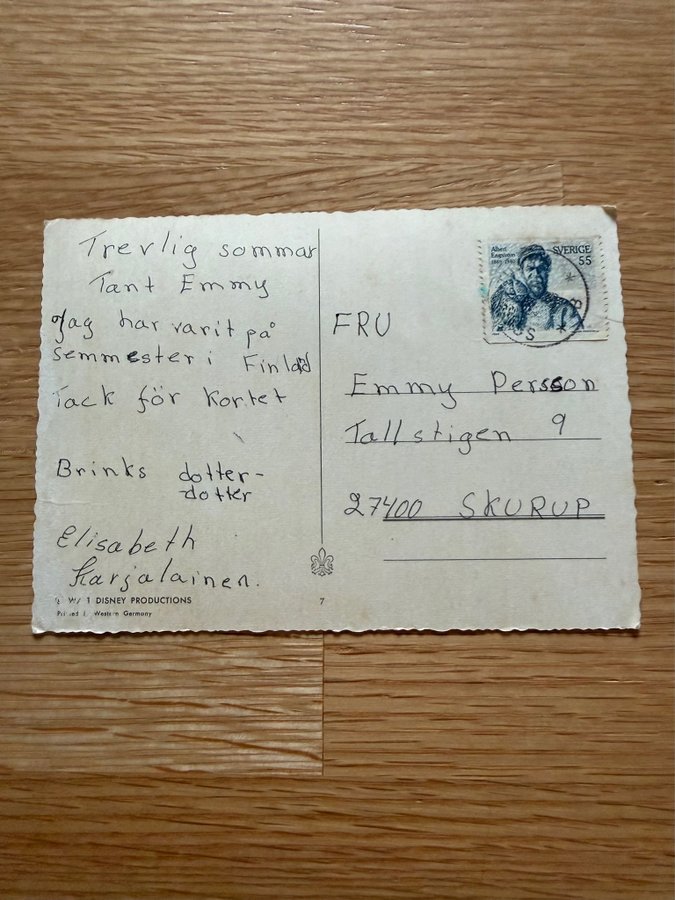 Trevlig sommar
Tant Emmy
Jag har varit på
semmester i Finland
Tack för kortet
Brinks dotter-
dotter
Elisabeth
Karjalainen.
DISNEY PRODUCTIONS
Printed Western Germany
7
Albert
Engström
SVERIGE
55
FRU
Emmy Persson
Tallstigen 9
27400 SKURUP